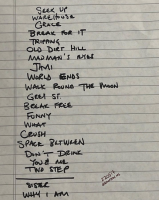 SEEK UP
WAREHOUSE
GRACE
BREAK FOR IT
TRIPPING
OLD DIRT HILL
MADMAN'S EYES
JTHI
WORLD ENDS
WALK AROUND THE MOON
GREY ST.
BREAK FREE
FUNNY
WHAT
CRUSH
SPACE BETWEEN
DON'T DRINK
YOU & ME
TWO STEP
SISTER
WHY I AM